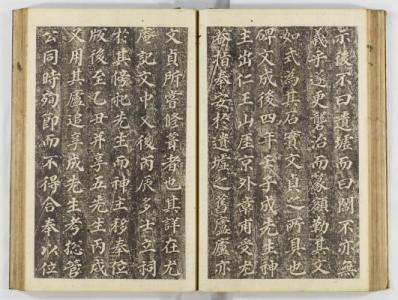 示後不曰遺墟而曰閭不亦無
義乎遂更礱治而篆額勒其文
如式為其石實文貞之所具也
碑文成後四年壬子成先生神
主出仁王山厓京外章甫受尤
翁指奉安於遺墟之舊廬廬亦
文貞所嘗修葺者也其詳在尤
菴記文中又後丙辰多士立祠
於其傍祀先生而神主移奉位
版後至乙丑并享五先生丙戌
又用其廬追享成先生考摠管
公同時殉節而不得合奉以位